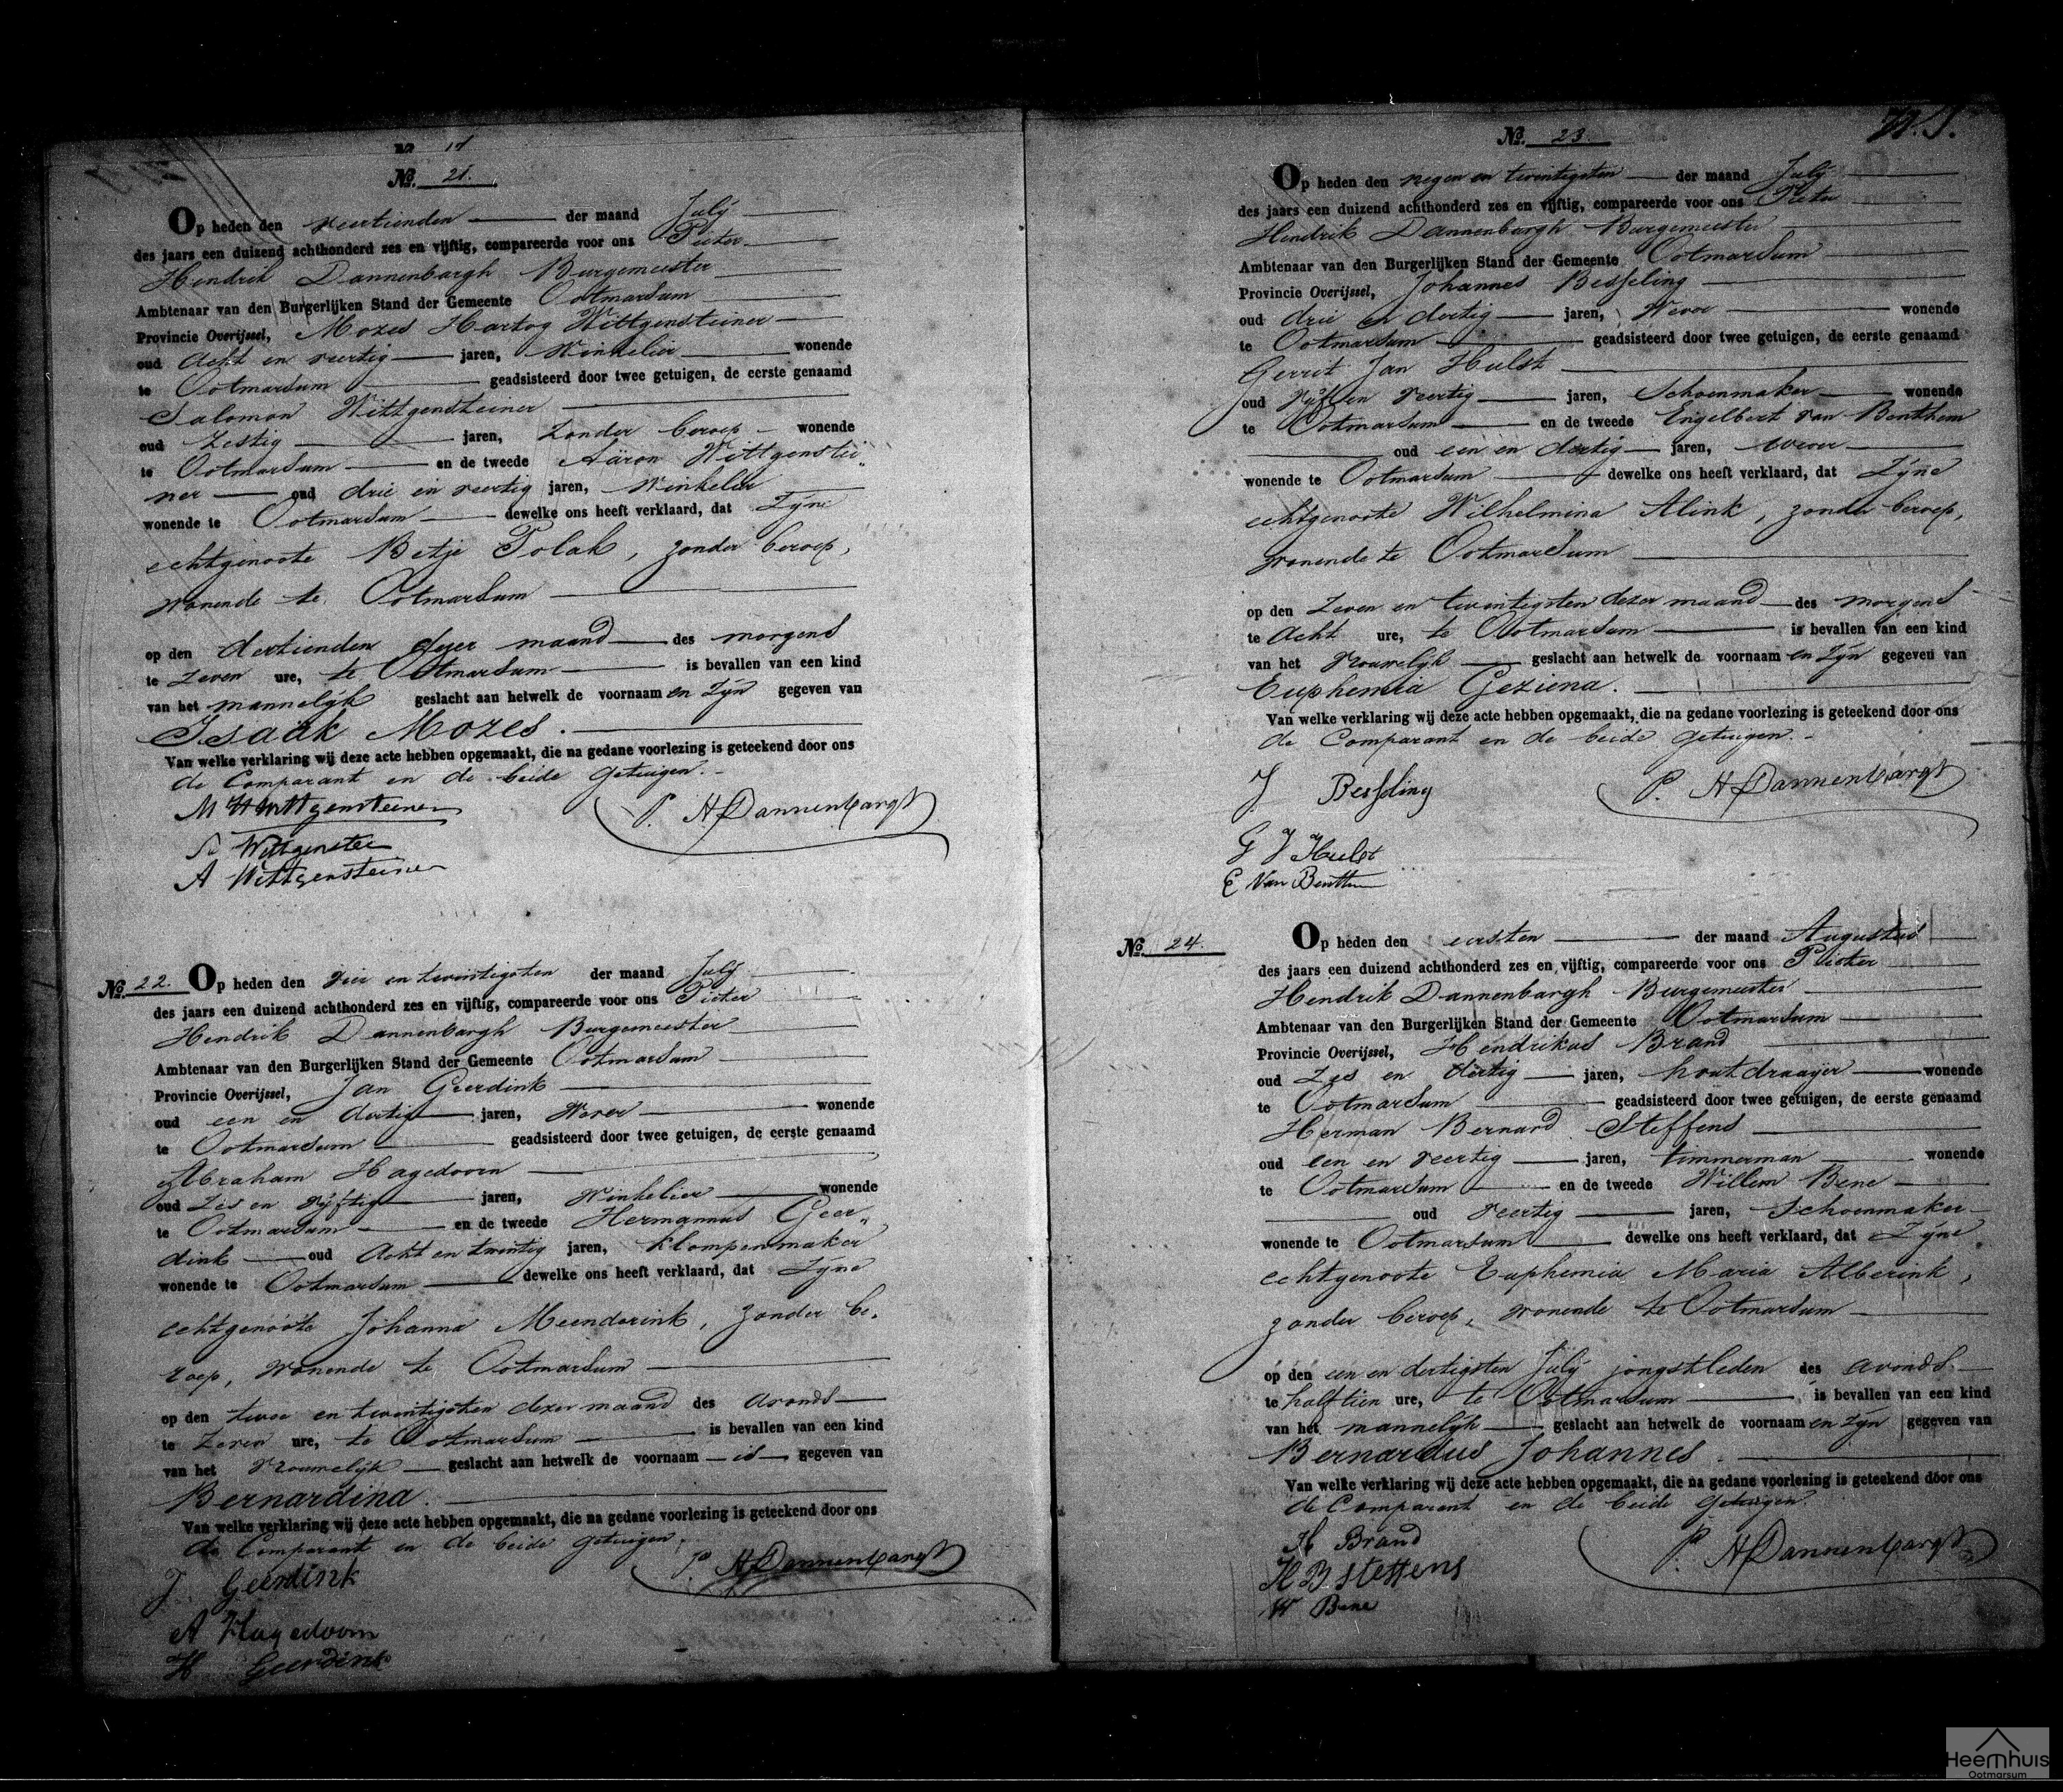 No. 21.
Op heden den veertienden der maand July
des jaars een duizend achthonderd zes en vijftig, compareerde voor ons Pieter
Hendrik Dannenbargh Burgemeester
Ambtenaar van den Burgerlijken Stand der Gemeente Ootmarsum
Provincie Overijssel, Mozes Hartog Wittgensteiner
oud Acht en veertig jaren, Winkelier wonende
te Ootmarsum geadsisteerd door twee getuigen, de eerste genaamd
Salomon Wittgensteiner
oud Zestig jaren, Zonder beroep wonende
te Ootmarsum en de tweede Aäron Wittgenstei„
ner oud drie en veertig jaren, Winkelier
wonende te Ootmarsum dewelke ons heeft verklaard, dat Zyne
echtgenoote Betje Polak, zonder beroep,
wonende te Ootmarsum
op den dertienden dezer maand des morgens
te Zeven ure, te Ootmarsum is bevallen van een kind
van het mannelyk geslacht aan hetwelk de voornaam en Zyn gegeven van
Isaäk Mozes.
Van welke verklaring wij deze acte hebben opgemaakt, die na gedane voorlezing is geteekend door ons
de Comparant en de beide getuigen.
M H Wittgensteiner
P. H Dannenbargh
S Wittgenstei
A Wittgensteiner
No. 22. Op heden den vier en twintigsten der maand July
des jaars een duizend achthonderd zes en vijftig, compareerde voor ons Pieter
Hendrik Dannenbargh Burgemeester
Ambtenaar van den Burgerlijken Stand der Gemeente Ootmarsum
Provincie Overijssel, Jan Geerdink
oud een en dertig jaren, Wever wonende
te Ootmarsum geadsisteerd door twee getuigen, de eerste genaamd
Abraham Hagedoorn
oud Zes en vyftig jaren, Winkelier wonende
te Ootmarsum en de tweede Hermannus Geer„
dink oud Acht en twintig jaren, Klompenmaker
wonende te Ootmarsum dewelke ons heeft verklaard, dat Zyne
echtgenoote Johanna Meenderink, zonder be„
roep, wonende te Ootmarsum
op den twee en twintigsten dezer maand des avonds
te Zeven ure, te Ootmarsum is bevallen van een kind
van het vrouwelyk geslacht aan hetwelk de voornaam is gegeven van
Bernardina.
Van welke verklaring wij deze acte hebben opgemaakt, die na gedane voorlezing is geteekend door ons
de Comparant en de beide getuigen.
J Geerdink
P. H Dannenbargh
A Hagedoorn
H Geerdink
No. 23.
Op heden den negen en twintigsten der maand July
des jaars een duizend achthonderd zes en vijftig, compareerde voor ons Pieter
Hendrik Dannenbargh Burgemeester
Ambtenaar van den Burgerlijken Stand der Gemeente Ootmarsum
Provincie Overijssel, Johannes Besseling
oud drie en dertig jaren, Wever wonende
te Ootmarsum geadsisteerd door twee getuigen, de eerste genaamd
Gerrit Jan Hulst
oud Vyf en veertig jaren, Schoenmaker wonende
te Ootmarsum en de tweede Engelbert van Benthem
oud een en dertig jaren, wever
wonende te Ootmarsum dewelke ons heeft verklaard, dat Zyne
echtgenoote Wilhelmina Alink, zonder beroep,
wonende te Ootmarsum
op den Zeven en twintigsten dezer maand des morgens
te Acht ure, te Ootmarsum is bevallen van een kind
van het vrouwelyk geslacht aan hetwelk de voornaam en Zyn gegeven van
Euphemia Geziena.
Van welke verklaring wij deze acte hebben opgemaakt, die na gedane voorlezing is geteekend door ons
de Comparant en de beide getuigen.
J. Besseling
P. H Dannenbargh
G J Hulst
E Van Benthem
No. 24. Op heden den eersten der maand Augustus
des jaars een duizend achthonderd zes en vijftig, compareerde voor ons Pieter
Hendrik Dannenbargh Burgemeester
Ambtenaar van den Burgerlijken Stand der Gemeente Ootmarsum
Provincie Overijssel, Hendrikus Brand
oud Zes en dertig jaren, houtdraayer wonende
te Ootmarsum geadsisteerd door twee getuigen, de eerste genaamd
Herman Bernard Steffens
oud een en veertig jaren, timmerman wonende
te Ootmarsum en de tweede Willem Bene
oud veertig jaren, Schoenmaker
wonende te Ootmarsum dewelke ons heeft verklaard, dat Zyne
echtgenoote Euphemia Maria Alberink,
zonder beroep, wonende te Ootmarsum
op den een en dertigsten July jongstleden des avonds
te half tien ure, te Ootmarsum is bevallen van een kind
van het mannelyk geslacht aan hetwelk de voornaam en Zyn gegeven van
Bernardus Johannes.
Van welke verklaring wij deze acte hebben opgemaakt, die na gedane voorlezing is geteekend door ons
de Comparant en de beide getuigen.
H Brand
P. H Dannenbargh
H B Steffens
W Bene
Heemhuis
Ootmarsum